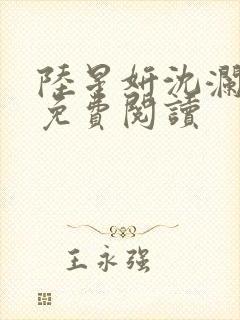 陸星妍沈瀾
免費閱讀
王永强